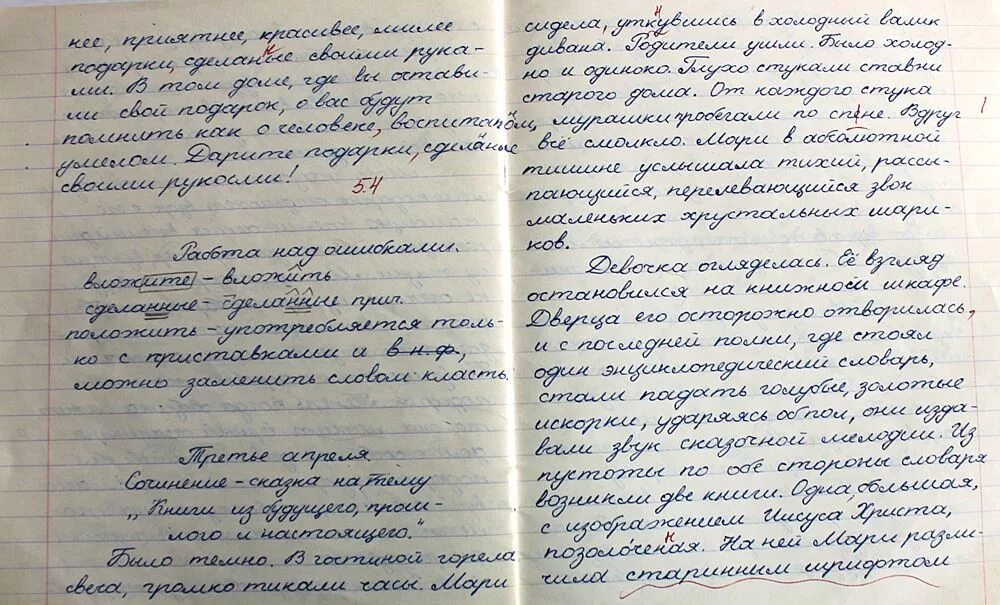 нее, приятнее, красивее, милее
подарки, сделанные своими рука-
ми. В том доме, где вы остави-
ли свой подарок, о вас будут
помнить как о человеке, воспитанном,
умелом. Дарите подарки, сделанные
своими руками!
5.4
Работа над ошибками.
вложите - вложить
сделанные - сделанные прич.
положить - употребляется толь-
ко с приставками и в н.ф.,
можно заменить словом класть.
Третье апреля
Сочинение - сказка на тему
„Книги из будущего, прош-
лого и настоящего."
Было темно. В гостиной горела
свеча, громко тикали часы. Мари
сидела, уткнувшись в холодный валик
дивана. Родители ушли. Было холод-
но и одиноко. Глухо стукали ставни
старого дома. От каждого стука
мурашки пробегали по спине. Вдруг
всё смолкло. Мари в абсолютной
тишине услышала тихий, рассы-
пающийся, перелевающийся звон
маленьких хрустальных шари-
ков.
Девочка огляделась. Её взгляд
остановился на книжной шкафе.
Дверца его осторожно отворилась,
и с последней полки, где стоял
один энциклопедический словарь,
стали падать голубые, золотые
искорки, ударяясь об пол, они изда-
вали звук сказочной мелодии. Из
пустоты по обе стороны словаря
возникли две книги. Одна, большая,
с изображением Иисуса Христа,
позолоченная. На ней Мари разли-
чила старинным шрифтом